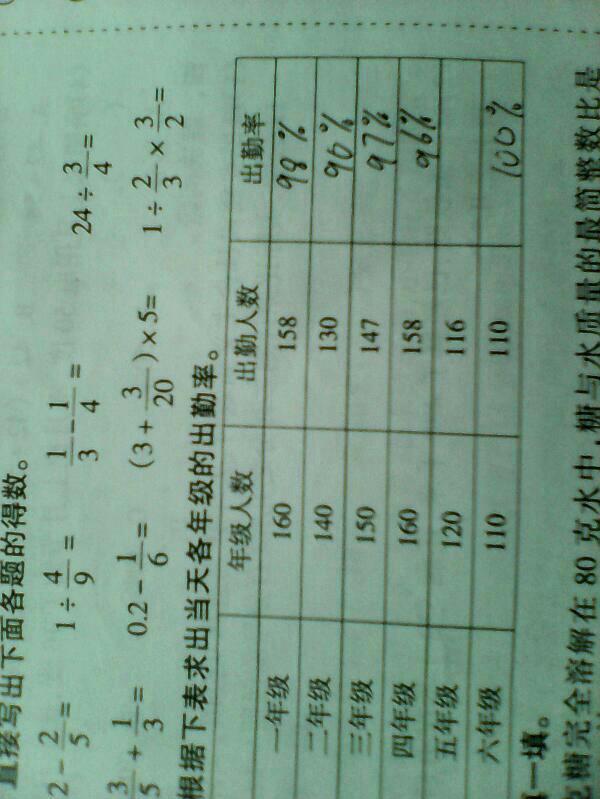 直接写出下面各题的得数。
2-2/5= 1÷4/9= 1/3-1/4= 24÷3/4=
3/5+1/3= 0.2-1/6= (3+3/20)×5= 1÷2/3×3/2=
根据下表求出当天各年级的出勤率。
年级人数 出勤人数 出勤率
一年级 160 158 98%
二年级 140 130 96%
三年级 150 147 97%
四年级 160 158 96%
五年级 120 116
六年级 110 110 100%
一填。
糖完全溶解在 80 克水中,糖与水质量的最简整数比是